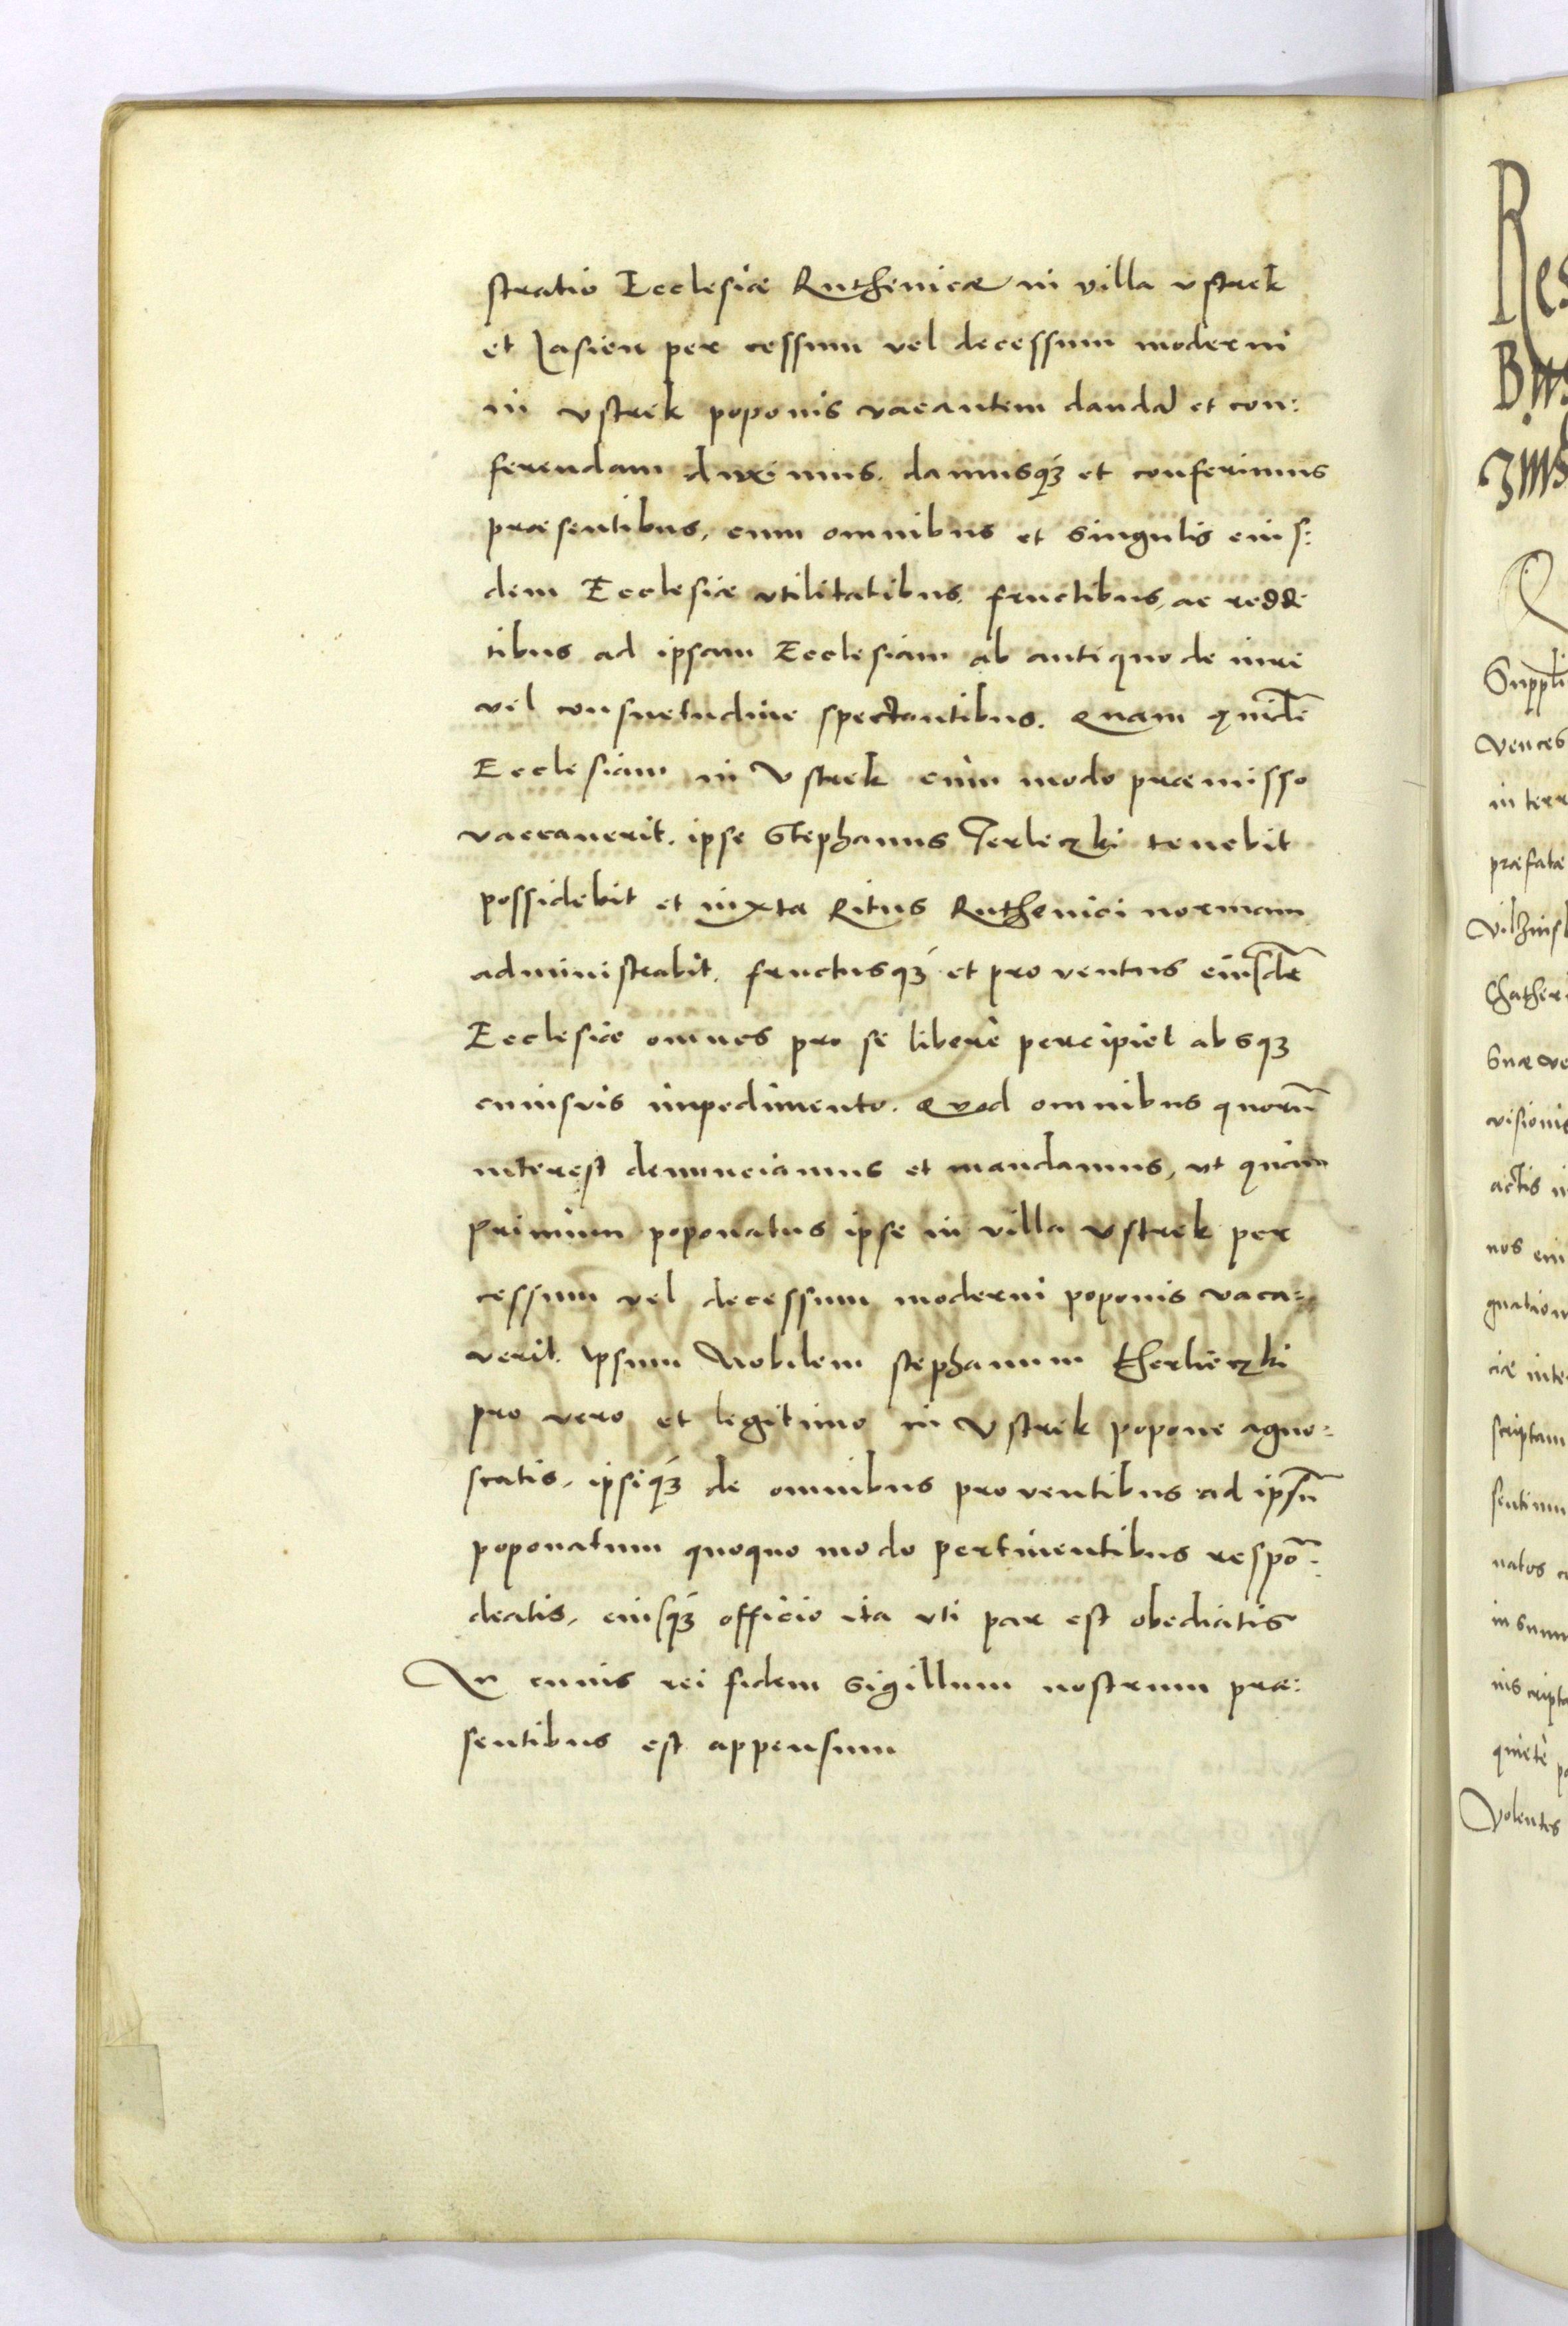 stratio Ecclesiæ Ruthenicæ in villa vstrek
et Iasien per cessum vel decessum moderni
in vstrek poponis vacantem dandā et con:
ferendam duximus. damusq; et conferimus
præsentibus, cum omnibus et singulis eius:
dem Ecclesiæ vtilitatibus, fructibus, ac reddi
tibus ad ipsam Ecclesiam ab antiquo de iure
vel consuetudine spectantibus. Quam quidē
Ecclesiam in Vstrek cum modo præmisso
vaccauerit. ipse Stephanus Terleczki tenebit
possidebit et iuxta Ritus Ruthenici normam
administrabit. fructusq; et prouentus eiusdē
Ecclesiæ omnes pro se liberè percipiet absq;
cuiusuis impedimento. Quod omnibus quorū
interest denunciamus et mandamus, vt quam
primum poponatus ipse in villa vstrek per
cessum vel decessum moderni poponis vaca:
verit. ipsum Nobilem stephanum therlieczki
pro vero et legitimo in Vstrek popone agno:
scatis, ipsiq; de omnibus prouentibus ad ipsū
poponatum quoquo modo pertinentibus respō:
deatis, eiusq; officio ita vti par est obediatis
In cuius rei fidem sigillum nostrum præ:
sentibus est appensum
Res
Suppli
vences
in terr
præfatæ
Cather
suæ
visionis
actis
nos
gnation
ciæ inte
scriptam
sentimu
natos
in summ
inscripta
quietè
Volentes